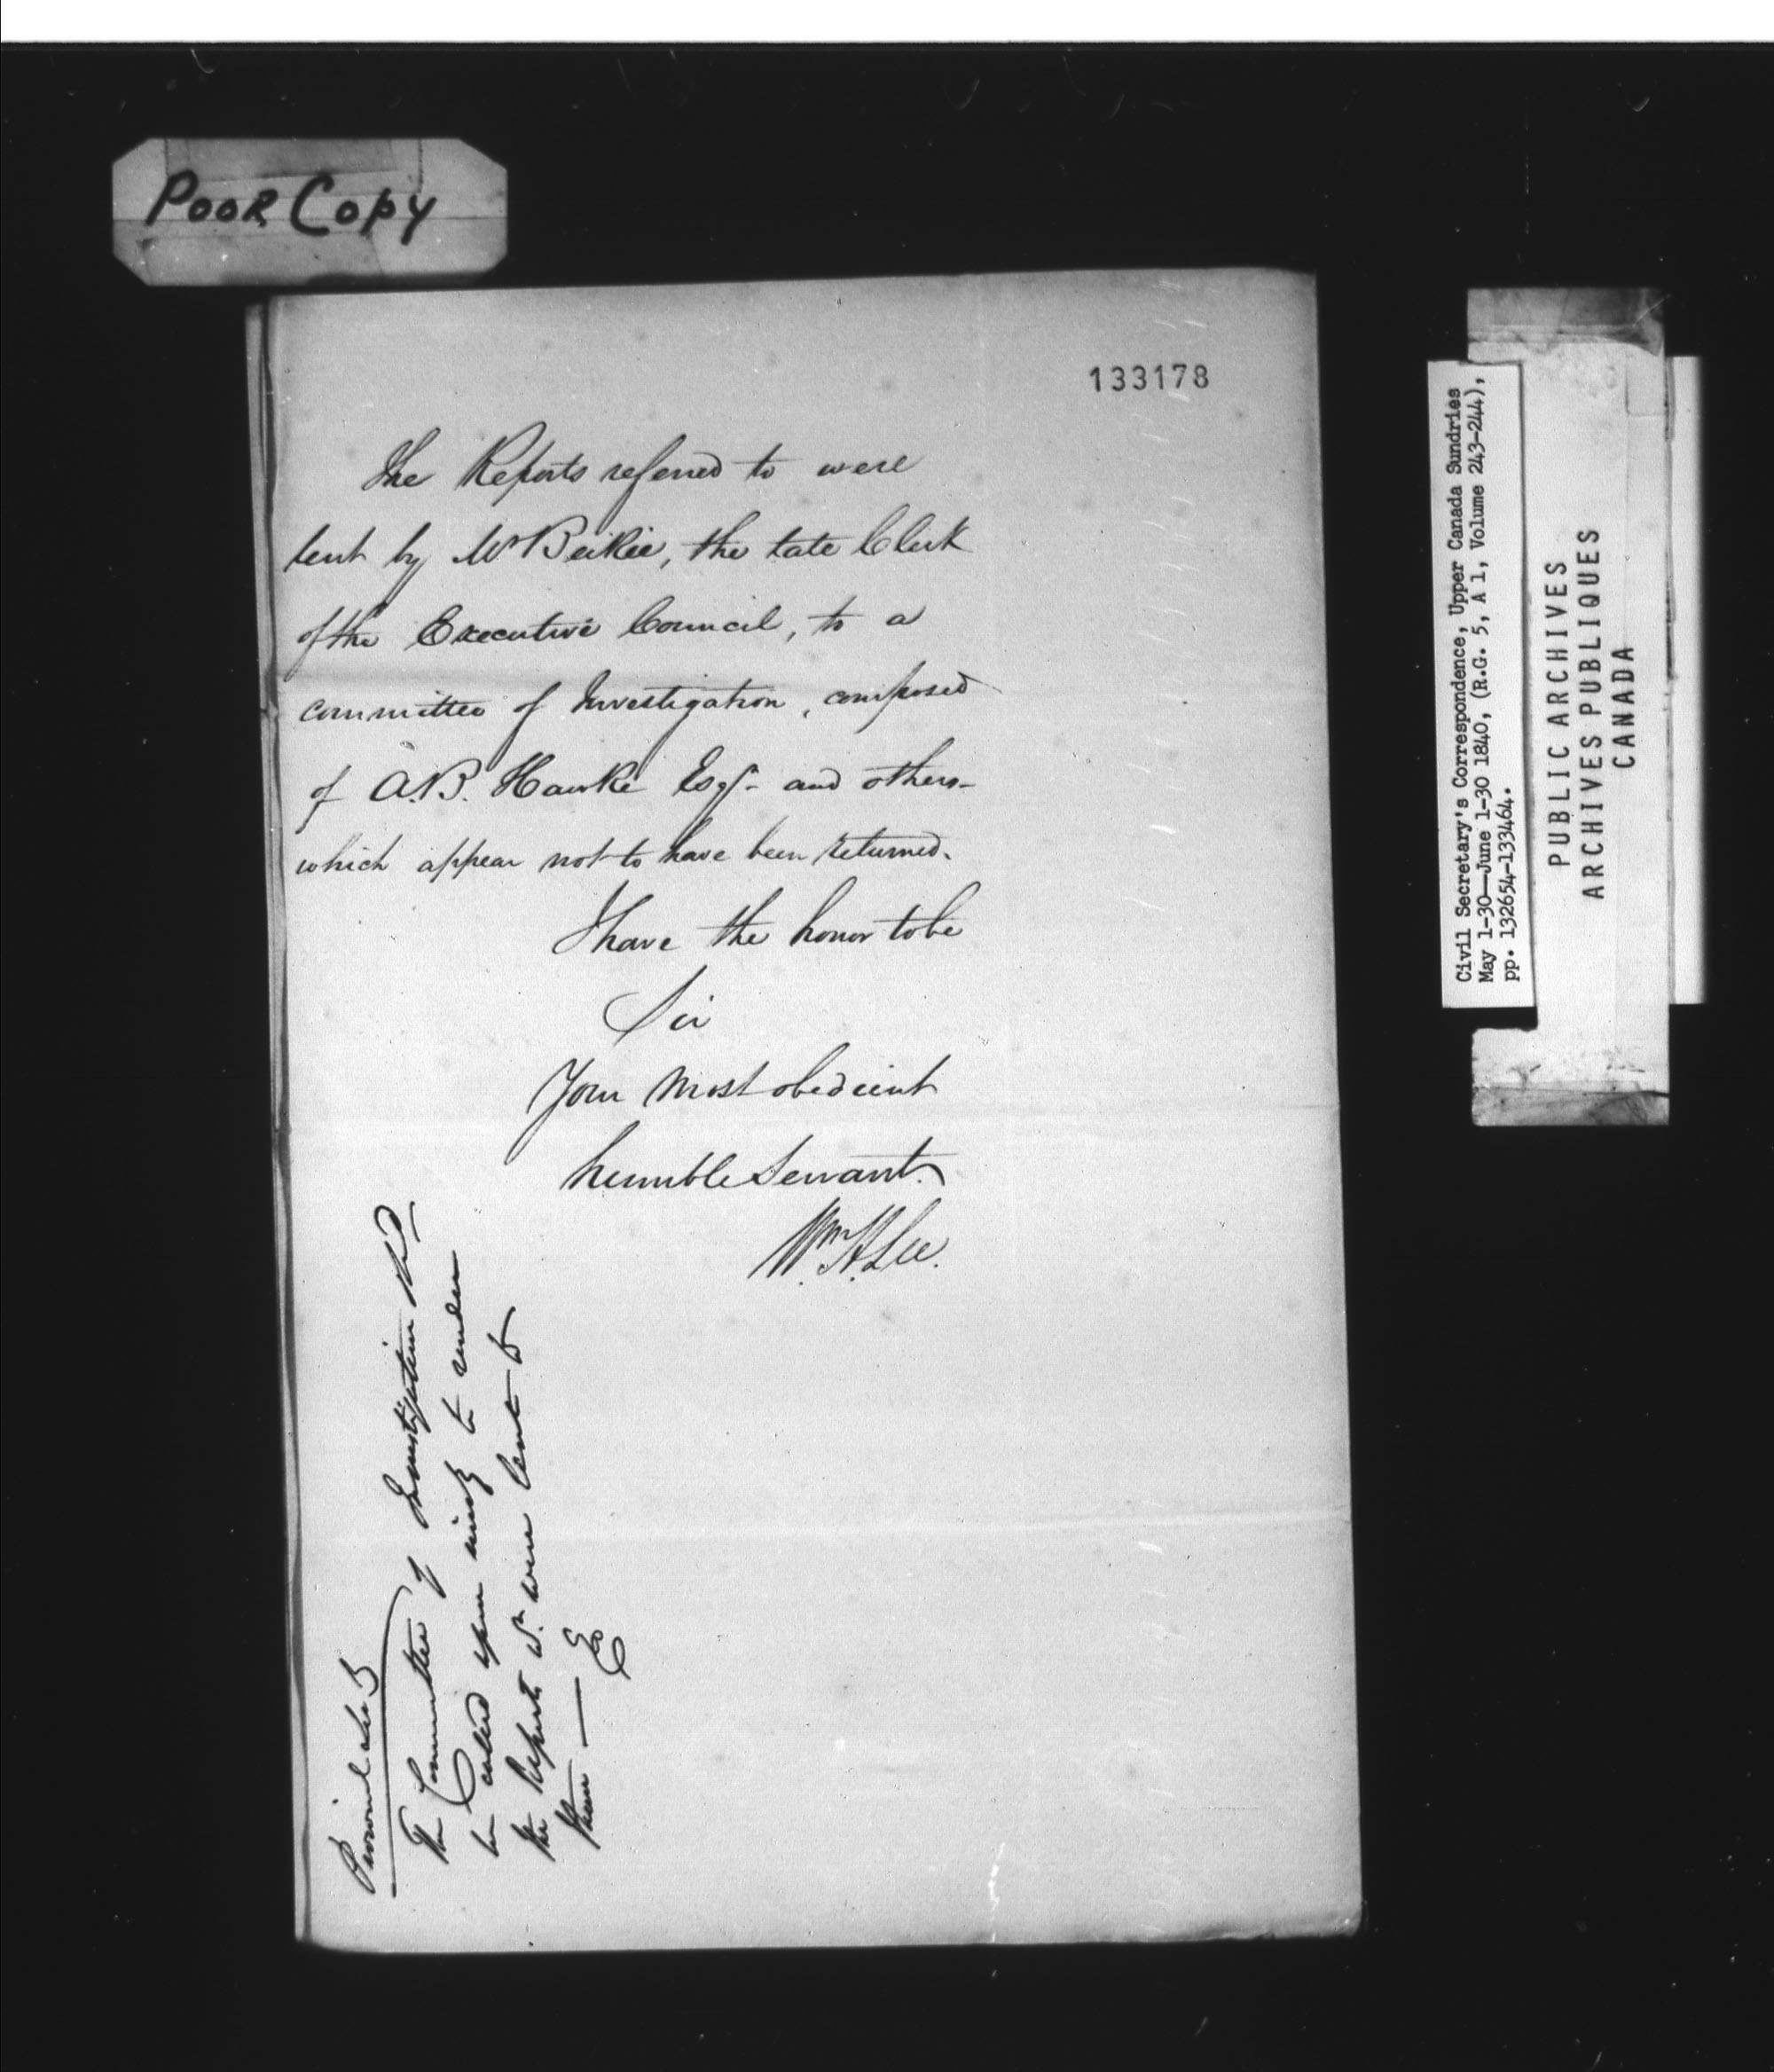 Poor Copy
133178
The Reports referred to were
lent by Mr Beikie, the late Clerk
of the Executive Council, to a
committee of Investigation, composed
of A.B. Hawke Esqr. and others
which appear not to have been returned.
I have the honor to be
Sir
Your most obedient
humble Servant.
Wm. H. Lee.
The Committee of Investigation
be called upon to render
the Reports wh. were lent to
them —
Civil Secretary's Correspondence, Upper Canada Sundries
May 1-30—June 1-30 1840, (R.G. 5, A 1, Volume 243-244),
pp. 132654-133464.
PUBLIC ARCHIVES
ARCHIVES PUBLIQUES
CANADA